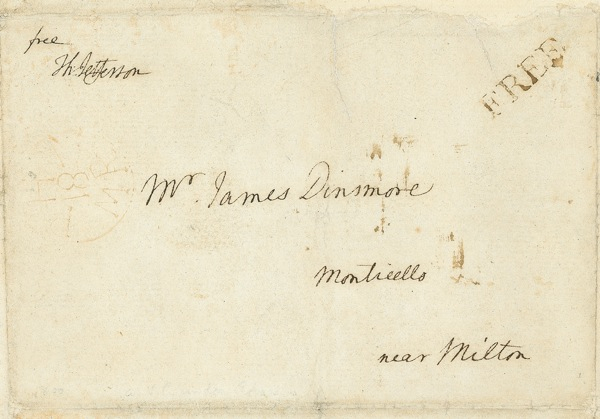 free
Th: Jefferson
FREE
Mr. James Dinsmore
Monticello
near Milton